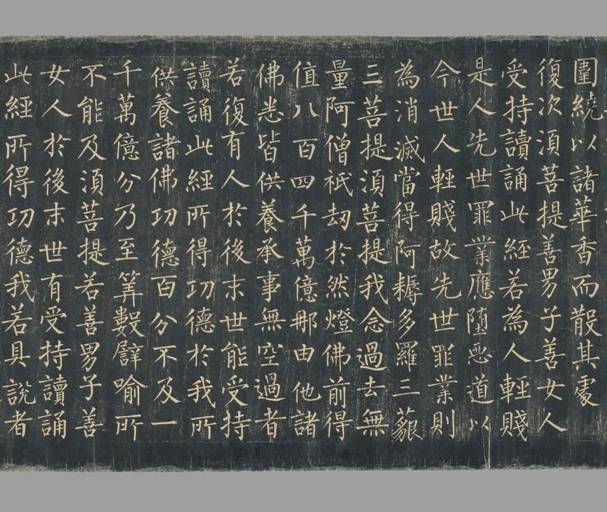 圍繞以諸華香而散其處
復次須菩提善男子善女人
受持讀誦此經若為人輕賤
是人先世罪業應墮惡道以
今世人輕賤故先世罪業則
為消滅當得阿耨多羅三藐
三菩提須菩提我念過去無
量阿僧祇劫於然燈佛前得
值八百四千萬億那由他諸
佛悉皆供養承事無空過者
若復有人於後末世能受持
讀誦此經所得功德於我所
供養諸佛功德百分不及一
千萬億分乃至筭數譬喻所
不能及須菩提若善男子善
女人於後末世有受持讀誦
此經所得功德我若具說者